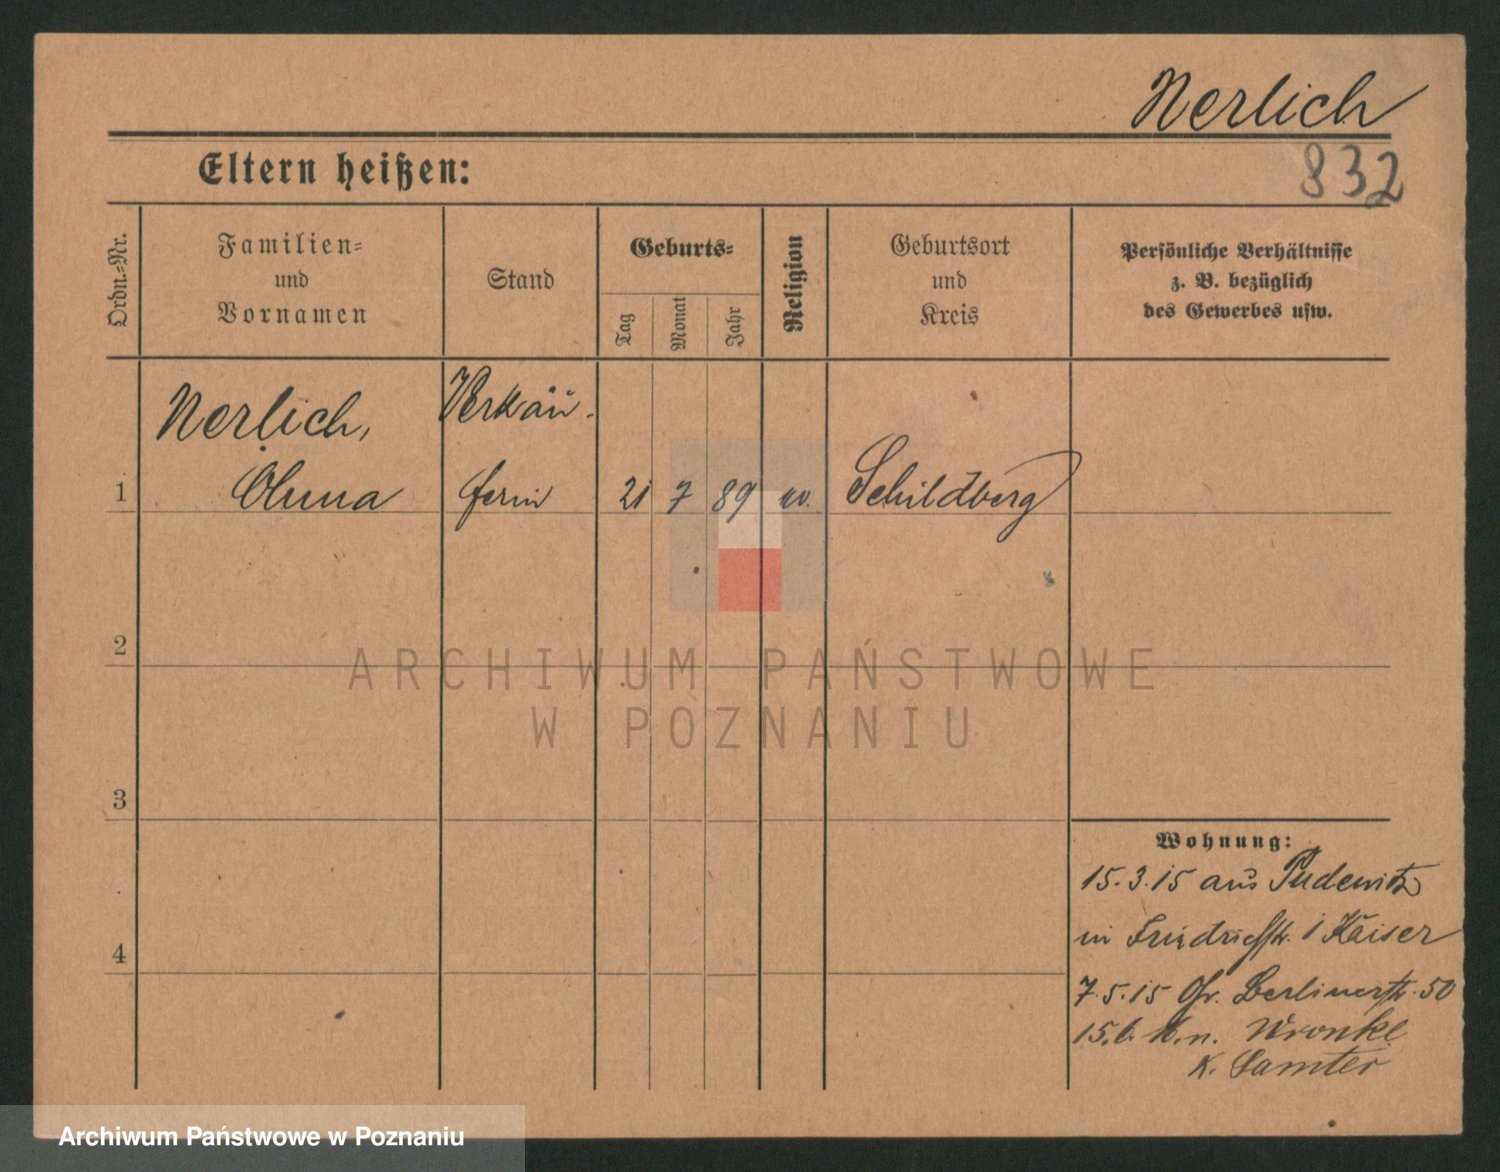 Nerlich
832
Eltern heißen:
Ordn.=Nr.
Familien=
und
Vornamen
Stand
Geburts=
Tag
Monat
Jahr
Religion
Geburtsort
und
Kreis
Persönliche Verhältnisse
z. B. bezüglich
des Gewerbes usw.
Nerlich,
Verkäu-
1
ferin 21 7 89 Schildberg
2
ARCHIWUM PAŃSTWOWE
W POZNANIU
3
Wohnung:
15.3.15 aus Pudewitz
in Friedrichstr. 1 Kaiser
4
7.5.15 Gr. Berlinerstr. 50
15.6. n. Wronke
K. Samter
Archiwum Państwowe w Poznaniu